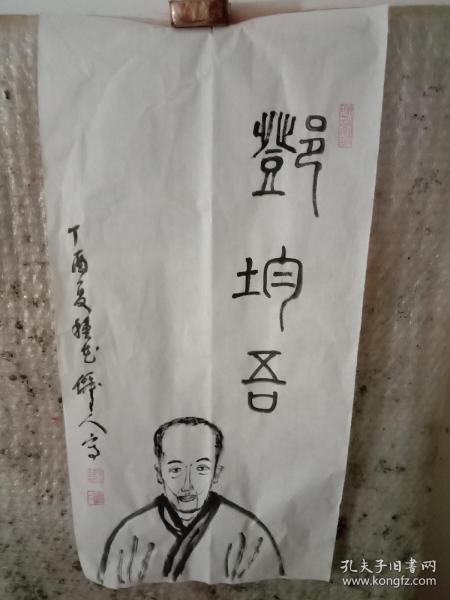 鄧均吾
丁酉夏種花僻人写
孔夫子旧书网
www.kongfz.com